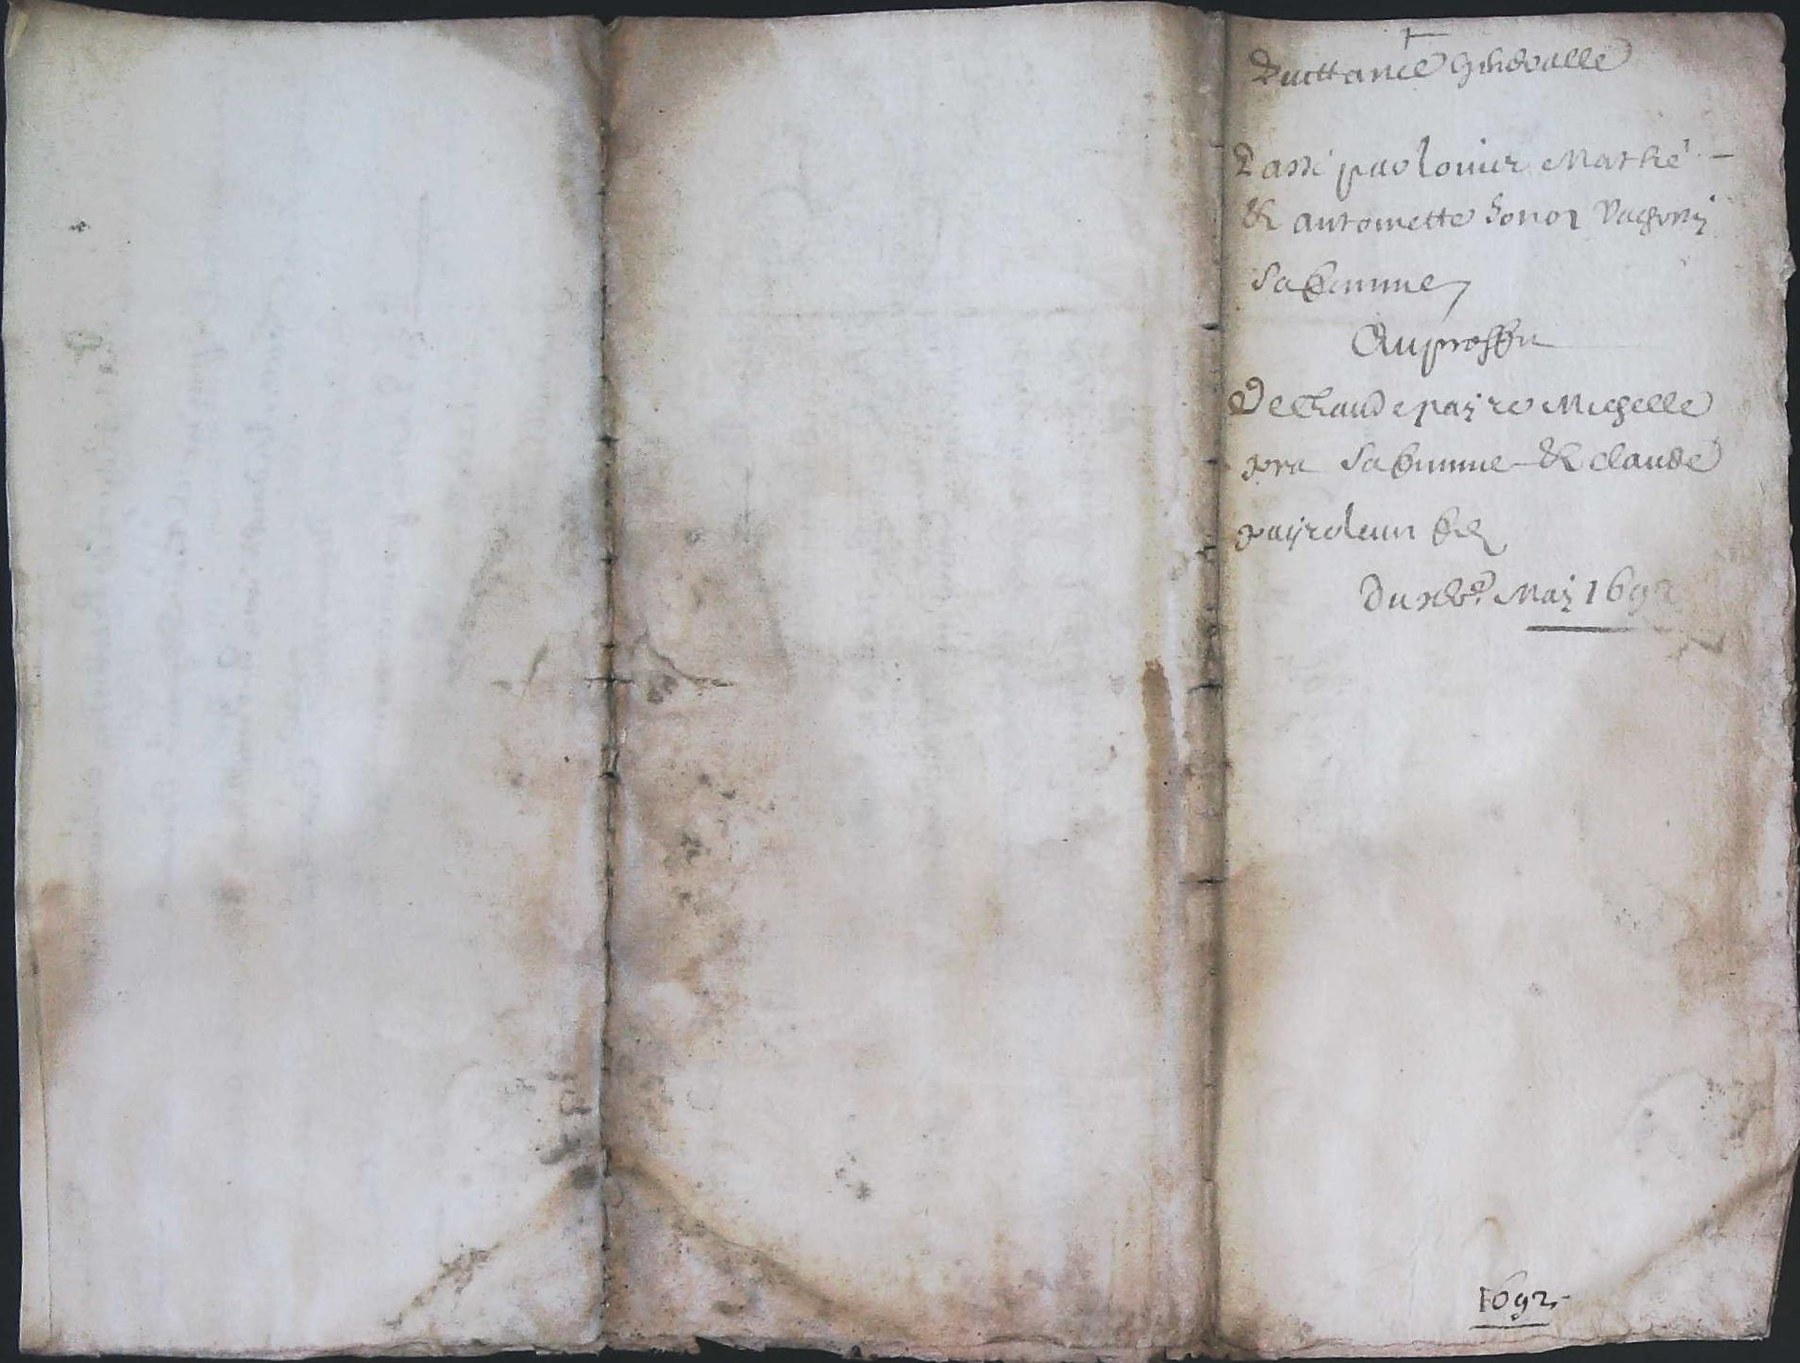 Quittance generalle
Passé par louis Mathé
& antoinette honor Vachon
sa femme
Au proffit
De Claude payre Michelle
sa femme & claude
payre leur
Du May 1692
1692